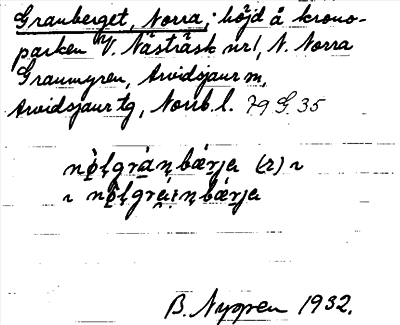 Granberget, Norra; höjd å krono-
parken V. Nästräsk nr 1, N. Norra
Granmyren, Arvidsjaur sn,
Arvidsjaur tg, Norrb. l. 79 G. 35
nǫ̀lgrànbærja (2) ɿ
ɿ nǫ̀lgrà:nbærja
B. Nyman 1932.